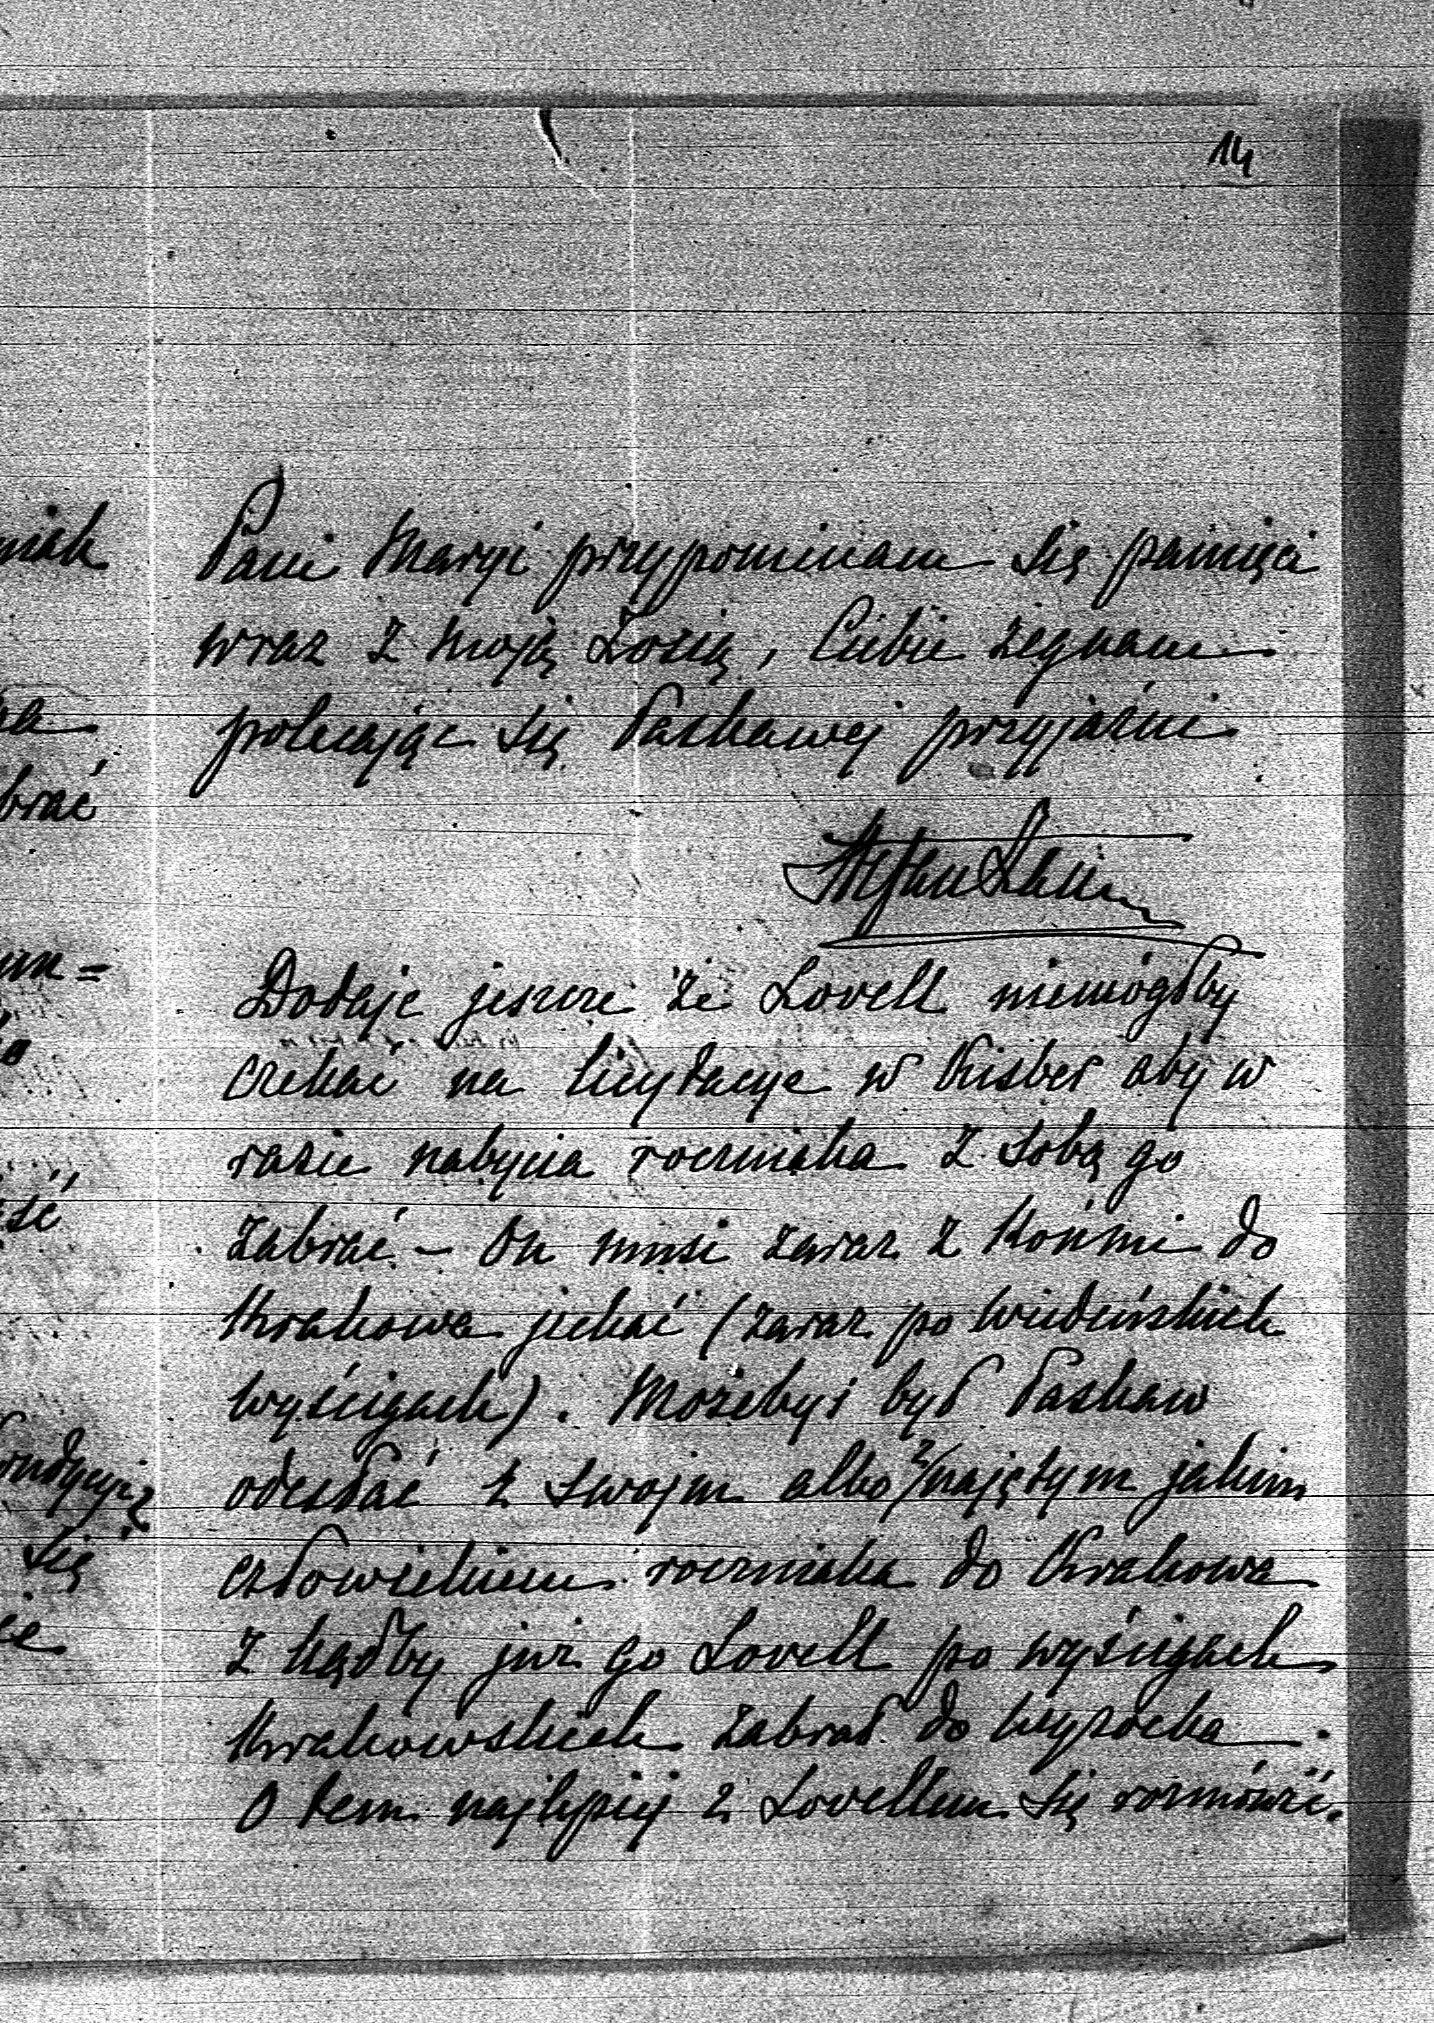 14
Pani Maryi przypominam się pamięci
wraz z moją Zosią, Ciebie żegnam
polecając się Łaskawej przyjaźni
Stefan Zam
Dodaję jeszcze że Lovell niemógłby
czekać na licytacye w Kisber aby w
razie nabycia roczniaka z sobą go
zabrać – On musi zaraz z Końmi do
Krakowa jechać (zaraz po Wiedeńskich
wyścigach). Możebyś był Łaskaw
odesłać z swojm albo z najętym jakim
człowiekiem roczniaka do Krakowa
z kądby już go Lovell po wyścigach
Krakowskich zabrał do Wysocka.
O tem najlepiej z Lovellem się rozmówić.
niak
brać
=
ść
się